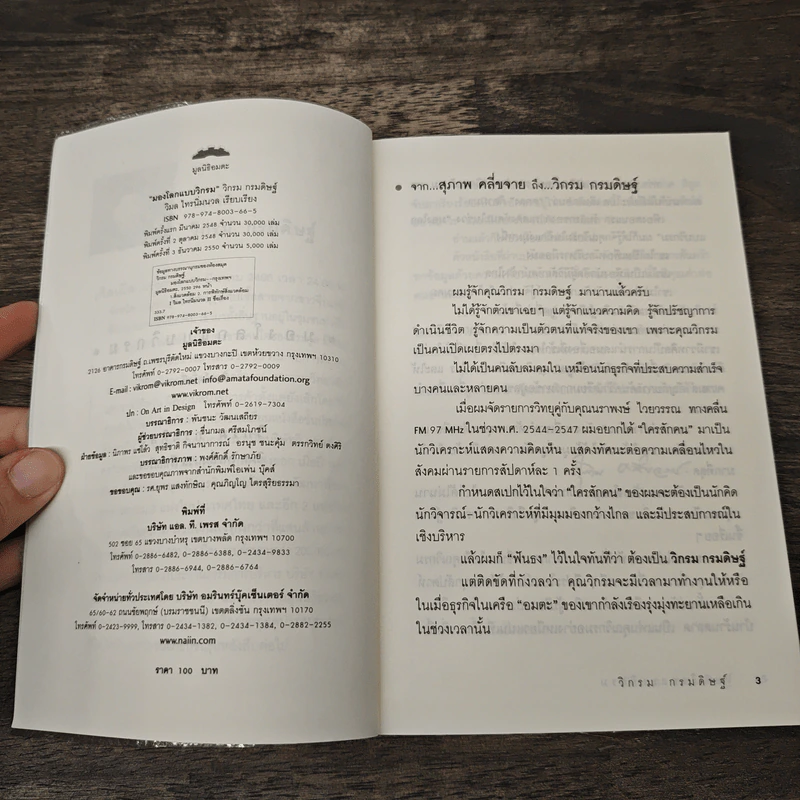 มูลนิธิอมตะ
"มองโลกแบบวิกรม" วิกรม กรมดิษฐ์
วิมล ไทรนิ่มนวล เรียบเรียง
ISBN 978-974-8003-66-5
พิมพ์ครั้งแรก มีนาคม 2548 จำนวน 30,000 เล่ม
พิมพ์ครั้งที่ 2 ตุลาคม 2548 จำนวน 30,000 เล่ม
พิมพ์ครั้งที่ 3 ธันวาคม 2550 จำนวน 5,000 เล่ม
ข้อมูลทางบรรณานุกรมของหอสมุด
วิกรม กรมดิษฐ์
มองโลกแบบวิกรม.--กรุงเทพฯ
มูลนิธิอมตะ, 2550 296 หน้า
333.7
ISBN 978-974-8003-66-5
เจ้าของ
มูลนิธิอมตะ
2126 อาคารกรมดิษฐ์ ถ.เพชรบุรีตัดใหม่ แขวงบางกะปิ เขตห้วยขวาง กรุงเทพฯ 10310
โทรศัพท์ 0-2792-0007 โทรสาร 0-2792-0009
E-mail : vikrom@vikrom.net info@amatafoundation.org
www.vikrom.net
ปก : On Art in Design โทรศัพท์ 0-2619-7304
บรรณาธิการ : พันชนะ วัฒนเสถียร
ผู้ช่วยบรรณาธิการ : ชื่นกมล ศรีสมโภชน์
ฝ่ายข้อมูล : นิภาพร แซ่โค้ว สุทธิชาติ กิจจนาการณ์ อรนุช ชนะคุ้ม ตรรกวิทย์ ดงศิริ
บรรณาธิการภาพ : พงศ์ศักดิ์ รักษาภัย
และขอขอบคุณภาพจากสำนักพิมพ์โอเพ่น บุ๊คส์
ขอขอบคุณ : รศ.ยุพร แสงทักษิณ คุณภิญโญ ไตรสุริยธรรมา
พิมพ์ที่
บริษัท แอล. ที. เพรส จำกัด
502 ซอย 65 แขวงบางบำหรุ เขตบางพลัด กรุงเทพฯ 10700
โทรศัพท์ 0-2886-6482, 0-2886-6388, 0-2434-9833
โทรสาร 0-2886-6944, 0-2886-6764
จัดจำหน่ายทั่วประเทศโดย บริษัท อมรินทร์บุ๊คเซ็นเตอร์ จำกัด
65/60-62 ถนนชัยพฤกษ์ (บรมราชชนนี) เขตตลิ่งชัน กรุงเทพฯ 10170
โทรศัพท์ 0-2423-9999, โทรสาร 0-2434-1382, 0-2434-1384, 0-2882-2255
www.naiin.com
ราคา 100 บาท
จาก...สุภาพ คลี่ขจาย ถึง...วิกรม กรมดิษฐ์
ผมรู้จักคุณวิกรม กรมดิษฐ์ มานานแล้วครับ
ไม่ได้รู้จักตัวเขาเฉยๆ แต่รู้จักแนวความคิด รู้จักปรัชญาการ
ดำเนินชีวิต รู้จักความเป็นตัวตนที่แท้จริงของเขา เพราะคุณวิกรม
เป็นคนเปิดเผยตรงไปตรงมา
ไม่ได้เป็นคนลับลมคมใน เหมือนนักธุรกิจที่ประสบความสำเร็จ
บางคนและหลายคน
เมื่อผมจัดรายการวิทยุคู่กับคุณนราพงษ์ ไวยวรรณ ทางคลื่น
FM 97 MHz ในช่วงพ.ศ. 2544-2547 ผมอยากได้ "ใครสักคน" มาเป็น
นักวิเคราะห์แสดงความคิดเห็น แสดงทัศนะต่อความเคลื่อนไหวใน
สังคมผ่านรายการสัปดาห์ละ 1 ครั้ง
กำหนดสเปกไว้ในใจว่า "ใครสักคน" ของผมจะต้องเป็นนักคิด
นักวิจารณ์-นักวิเคราะห์ที่มีมุมมองกว้างไกล และมีประสบการณ์ใน
เชิงบริหาร
แล้วผมก็ "ฟันธง" ไว้ในใจทันทีว่า ต้องเป็น วิกรม กรมดิษฐ์
แต่ติดขัดที่กังวลว่า คุณวิกรมจะมีเวลามาทำงานให้หรือ
ในเมื่อธุรกิจในเครือ "อมตะ" ของเขากำลังเรืองรุ่งมุ่งทะยานเหลือเกิน
ในช่วงเวลานั้น
วิกรม กรมดิษฐ์ 3